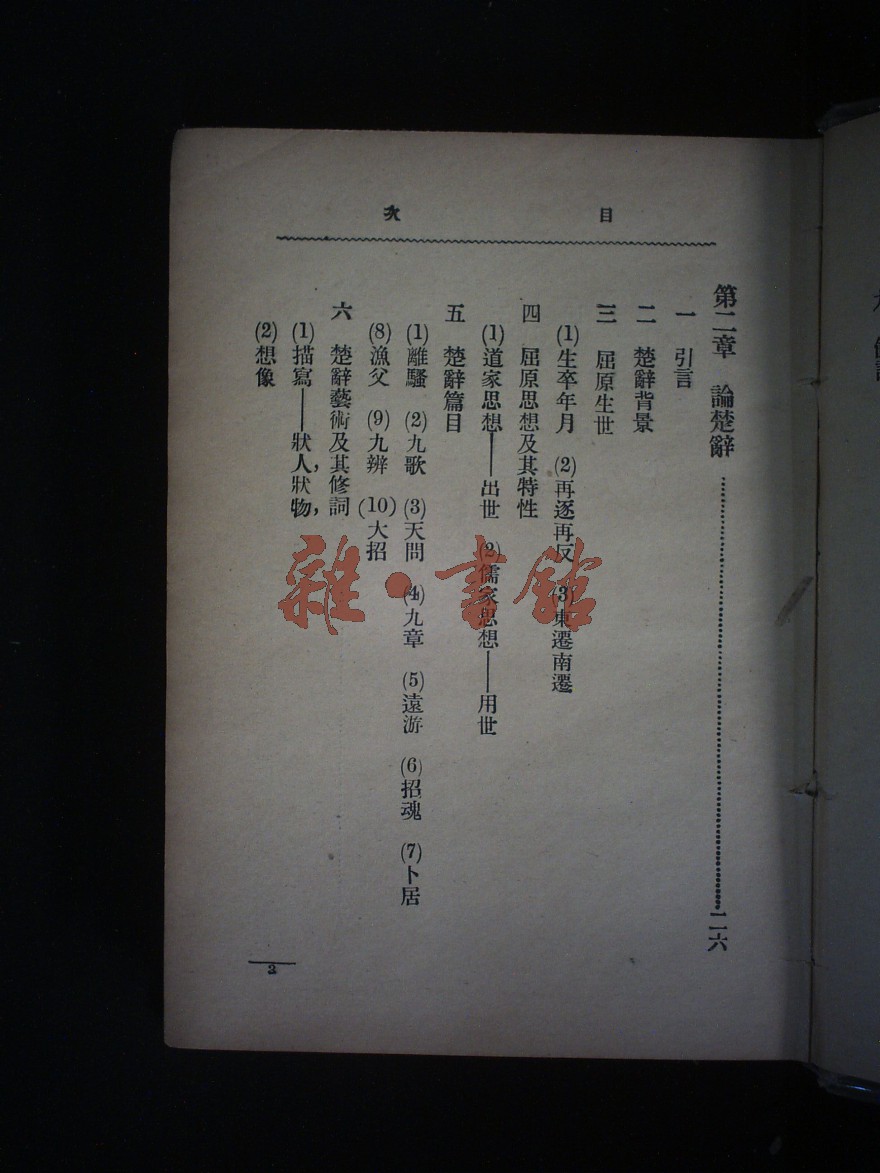 目次
第二章　論楚辭……二六
一　引言
二　楚辭背景
三　屈原生世
(1)生卒年月　(2)再逐再反　(3)東遷南遷
四　屈原思想及其特性
(1)道家思想——出世　(2)儒家思想——用世
五　楚辭篇目
(1)離騷　(2)九歌　(3)天問　(4)九章　(5)遠游　(6)招魂　(7)卜居
(8)漁父　(9)九辨　(10)大招
六　楚辭藝術及其修詞
(1)描寫——狀人，狀物，
(2)想像
3
雜·書館